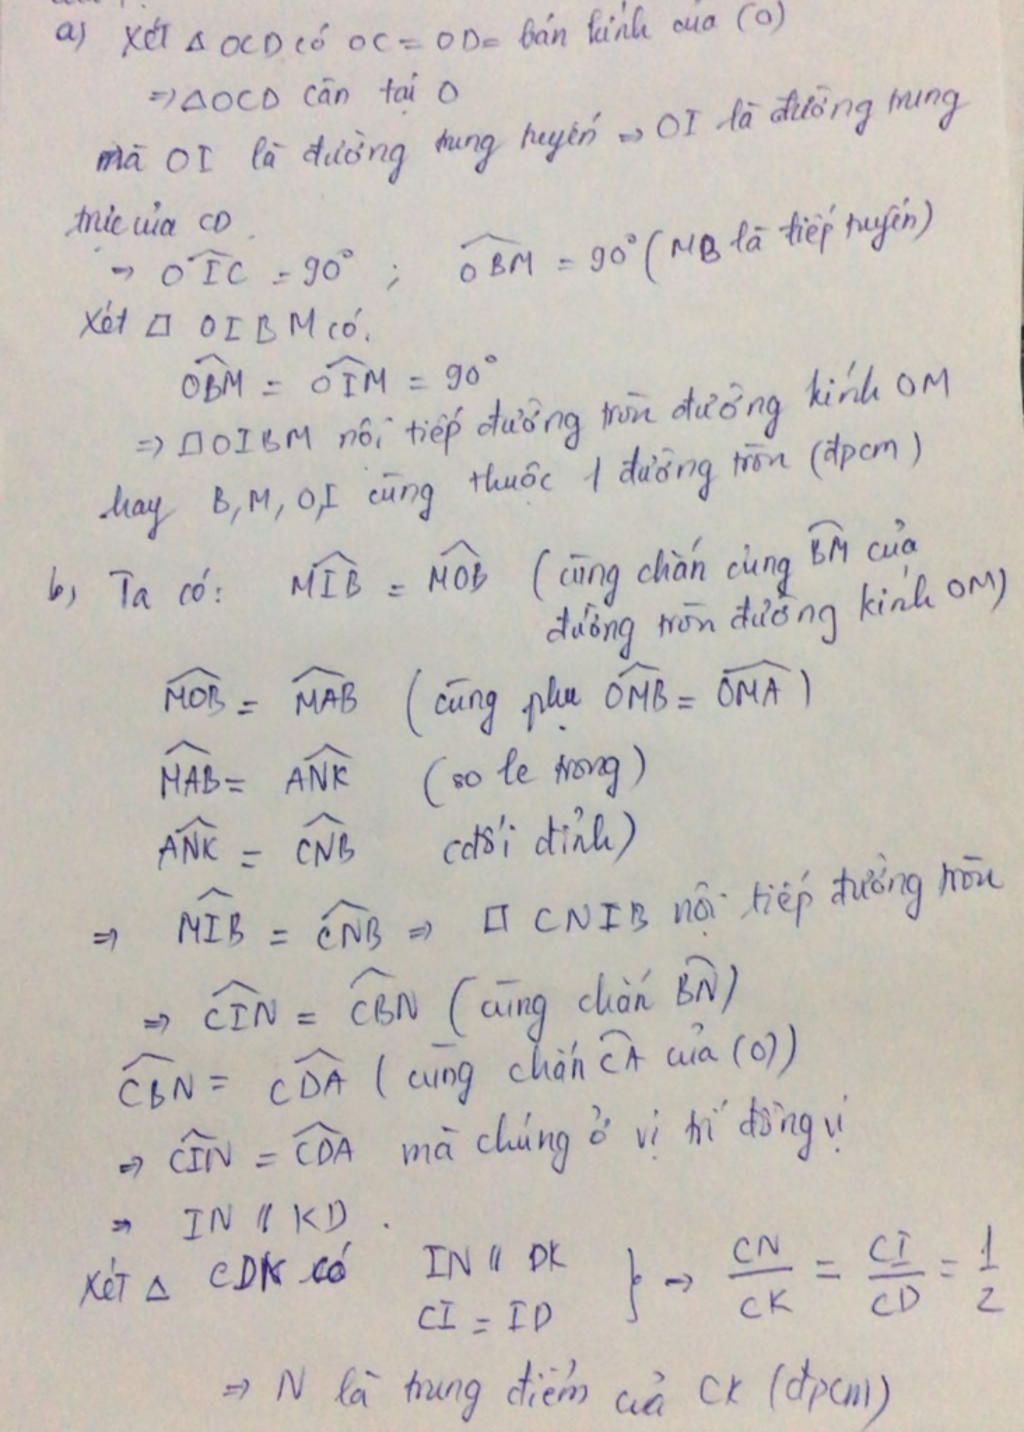 a) Xét △ OCD có OC = OD = bán kính của (O)
⇒ △OCD cân tại O
mà OI là đường trung tuyến ⇒ OI là đường trung
trực của CD.
⇒ \widehat{OIC} = 90° ; \widehat{OBM} = 90° (MB là tiếp tuyến)
Xét □ OIBM có.
\widehat{OBM} = \widehat{OIM} = 90°
⇒ □OIBM nội tiếp đường tròn đường kính OM
hay B, M, O, I cùng thuộc 1 đường tròn (đpcm)
b, Ta có: \widehat{MIB} = \widehat{MOB} (cùng chắn cùng \widehat{BM} của
đường tròn đường kính OM)
\widehat{MOB} = \widehat{MAB} (cùng phụ \widehat{OMB} = \widehat{OMA})
\widehat{MAB} = \widehat{ANK} (so le trong)
\widehat{ANK} = \widehat{CNB} (đối đỉnh)
⇒ \widehat{MIB} = \widehat{CNB} ⇒ □ CNIB nội tiếp đường tròn
⇒ \widehat{CIN} = \widehat{CBN} (cùng chắn \widehat{BN})
\widehat{CBN} = \widehat{CDA} (cùng chắn \widehat{CA} của (O))
⇒ \widehat{CIN} = \widehat{CDA} mà chúng ở vị trí đồng vị
⇒ IN // KD.
Xét △ CDK có IN // DK
CI = ID } ⇒ CN/CK = CI/CD = 1/2
⇒ N là trung điểm của CK (đpcm)